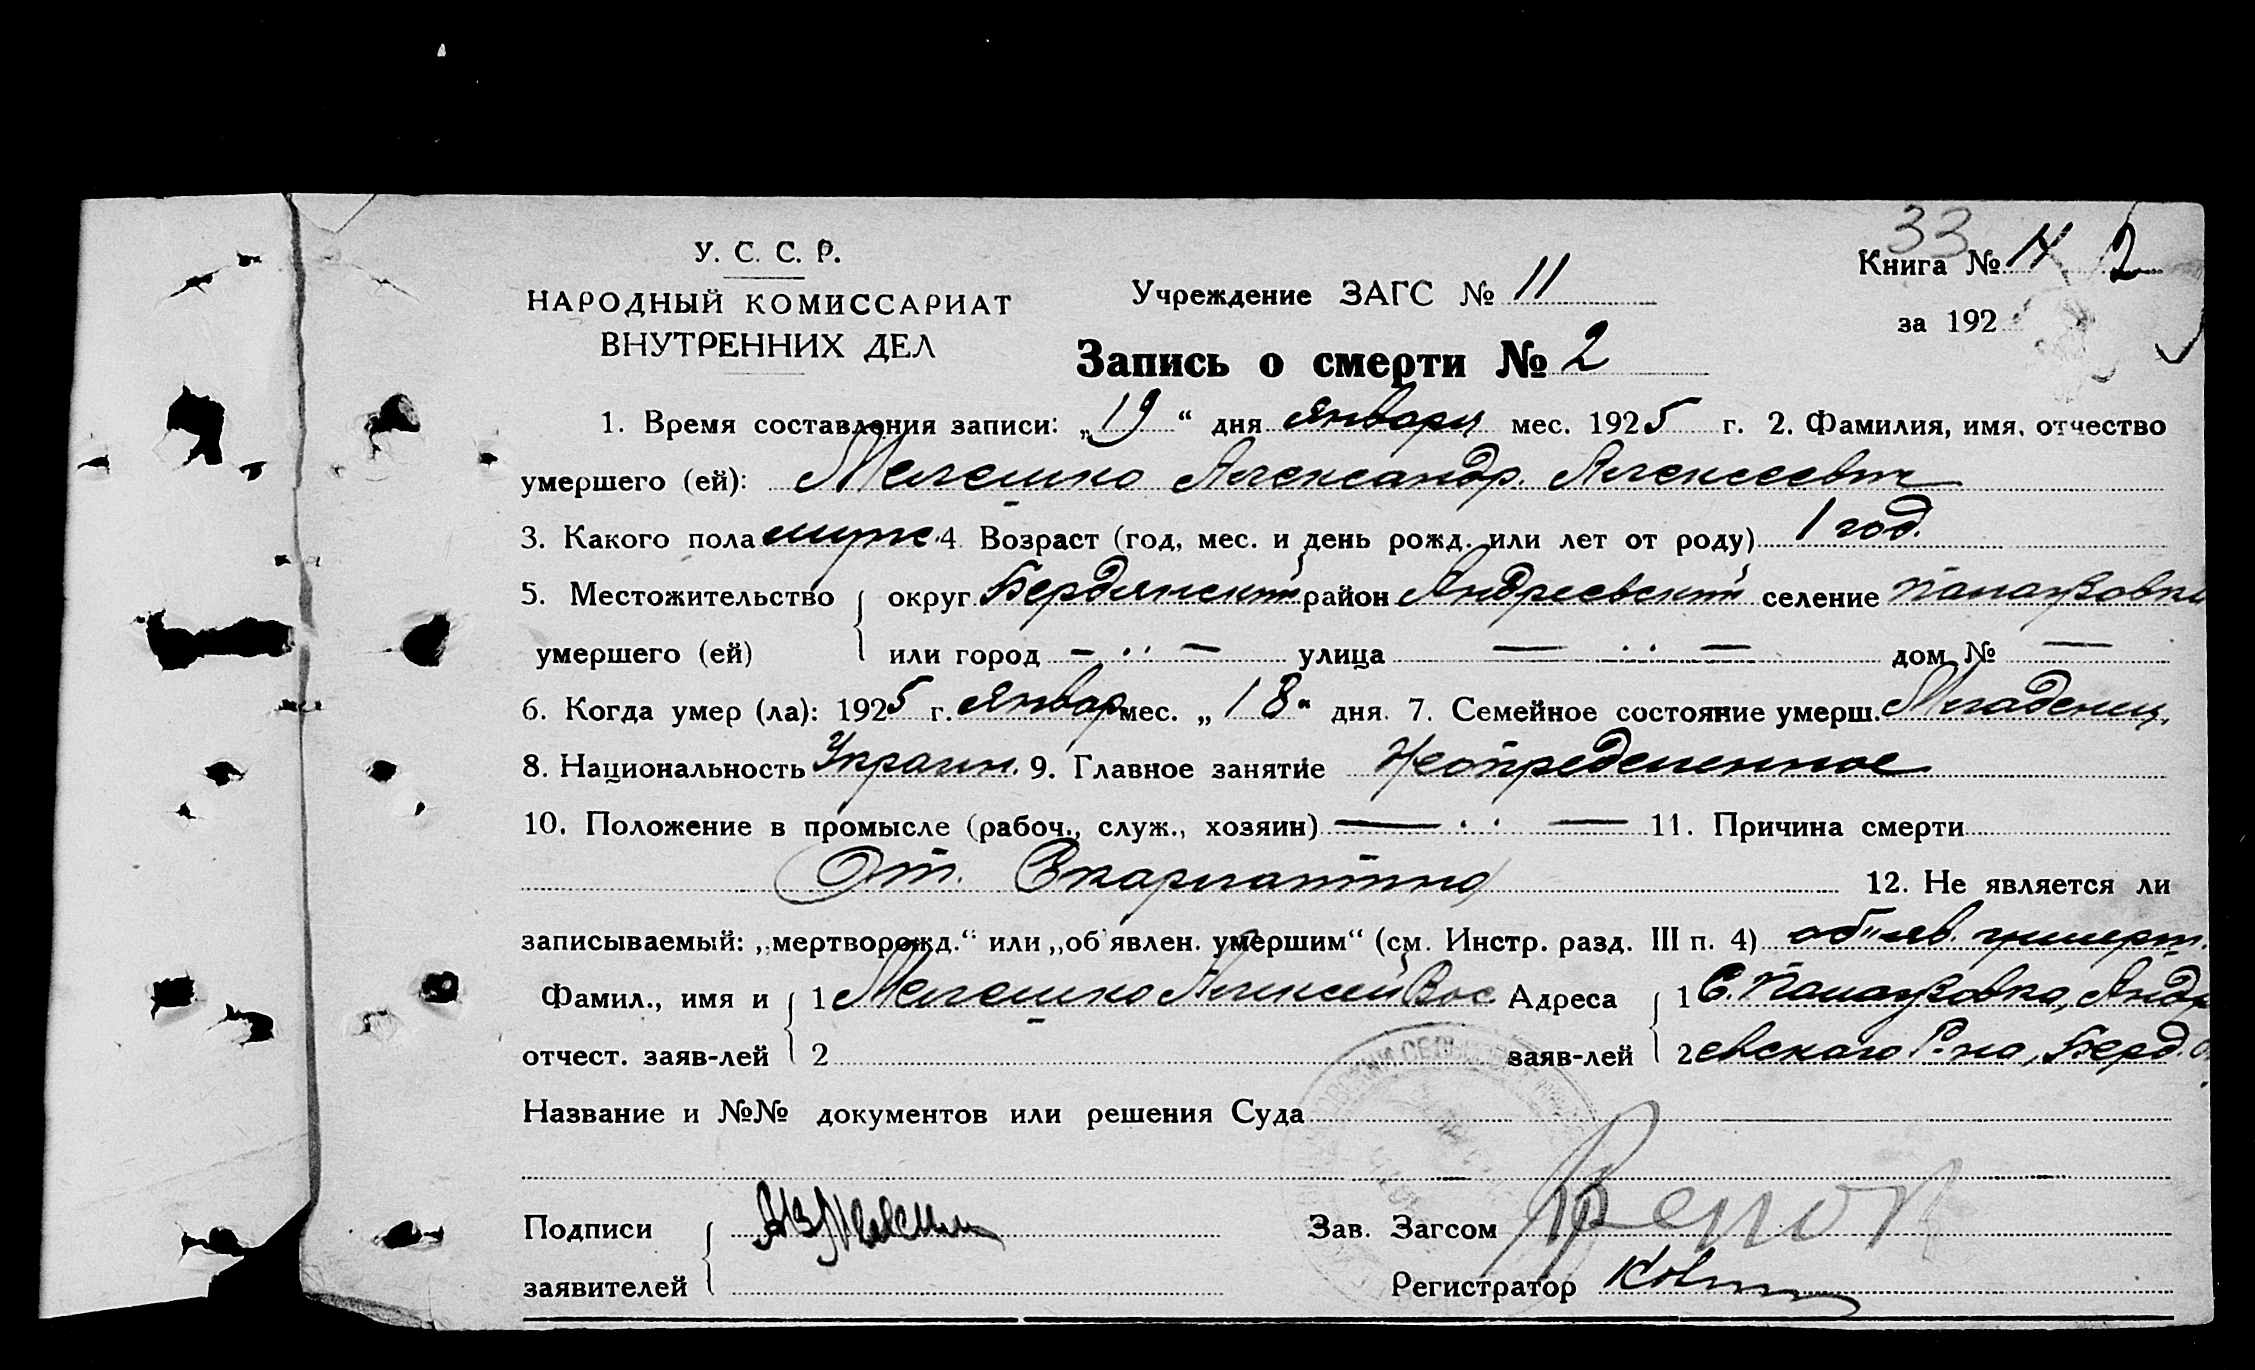 33
У. С. С. Р.
НАРОДНЫЙ КОМИССАРИАТ
ВНУТРЕННИХ ДЕЛ
Учреждение ЗАГС № 11
Книга № 2
за 192
Запись о смерти № 2
1. Время составления записи: „19“ дня января мес. 1925 г. 2. Фамилия, имя, отчество
умершего (ей): Мелешко Александр. Алексеевич
3. Какого пола муж. 4. Возраст (год, мес. и день рожд. или лет от роду) 1 год.
5. Местожительство округ Бердянский район Андреевский селение Панауровка
умершего (ей) или город — ·· — улица — ·· — дом № —
6. Когда умер (ла): 1925 г. Январ мес. „18“ дня. 7. Семейное состояние умерш. Младенец.
8. Национальность Украин. 9. Главное занятие Неопределенное
10. Положение в промысле (рабоч., служ., хозяин) — ·· — 11. Причина смерти
От. Скарлатина
12. Не является ли
записываемый: „мертворожд.“ или „об'явлен. умершим“ (см. Инстр. разд. III п. 4) об"яв. умерш.
Фамил., имя и 1 Мелешко Алексей Вас Адреса 1 С. Панауровка, Андре
отчест. заяв-лей 2 заяв-лей 2 евского Р-на, Берд. О
Название и №№ документов или решения Суда
Подписи Зав. Загсом
заявителей Регистратор